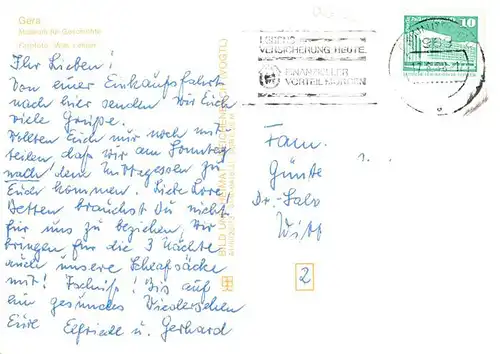 Gera
Museum für Geschichte
Ihr Lieben!
Von einer Einkaufsfahrt
nach hier senden wir Euch
viele Grüße.
Wollten Euch nur noch mit-
teilen, daß wir am Sonntag
nach dem Mittagessen zu
Euch kommen. Liebe Lore!
Betten brauchst Du nicht
für uns zu beziehen, wir
bringen für die 3 Nächte
auch unsere Schlafsäcke
mit! Tschüß! Bis auf
ein gesundes Wiedersehen
Eure Elfriede u. Gerhard
BILD UND HEIMAT REICHENBACH (VOGTL)
VERSICHERUNG HEUTE
FINANZIELLER
10
Fam.
Günte
Dr.-Salv
Witt
2